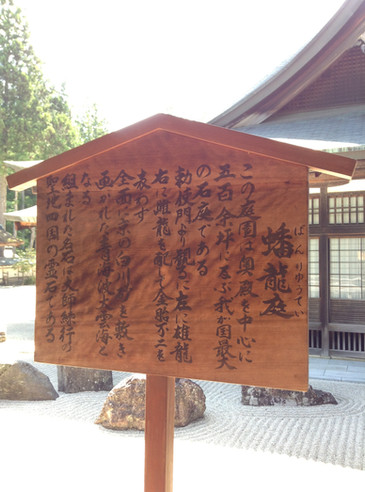 蟠龍庭
ばんりゅうてい
この庭園は奥殿を中心に
五百余坪に及ぶ我が国最大
の石庭である
勅使門より観るに左に雄龍
右に雌龍を配して金胎不二を
表わす
全面に京の白川砂を敷き
画かれた青海波は雲海と
なる
組まれた巨石は大師録行の
聖地四国の霊石である